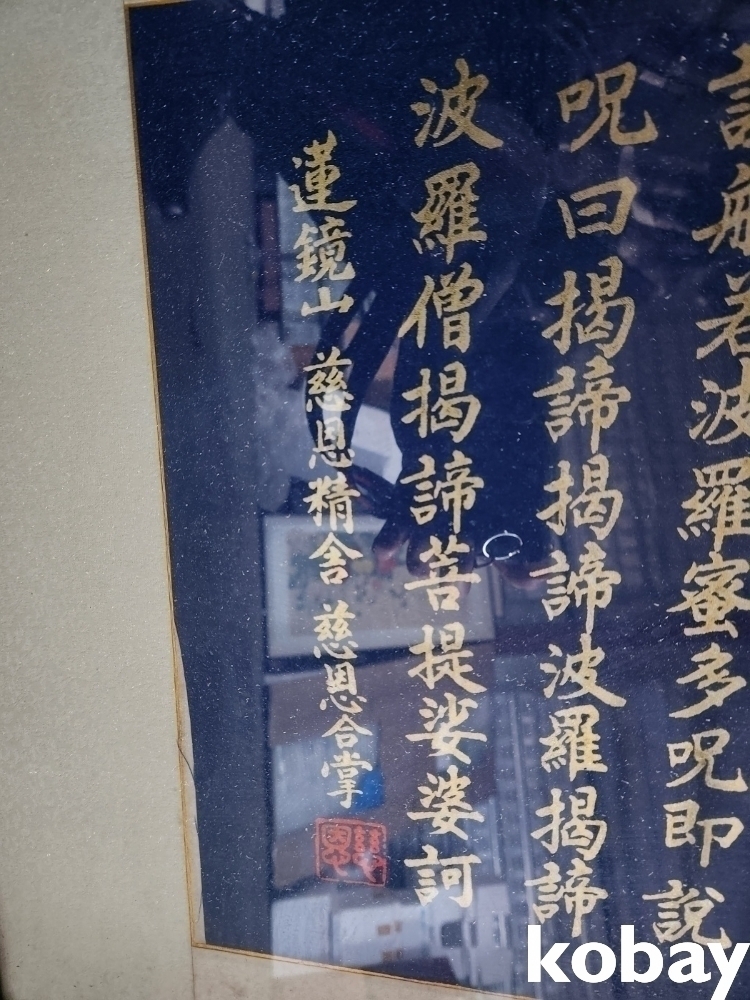 說般若波羅蜜多呪即說
呪曰揭諦揭諦波羅揭諦
波羅僧揭諦菩提娑婆訶
蓮鏡山 慈恩精舍 慈恩合掌
慈恩
kobay